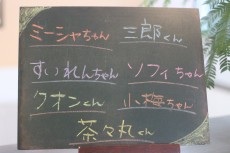 ミーシャちゃん 三郎くん
すいれんちゃん ソフィちゃん
クオンくん 小梅ちゃん
茶々丸くん